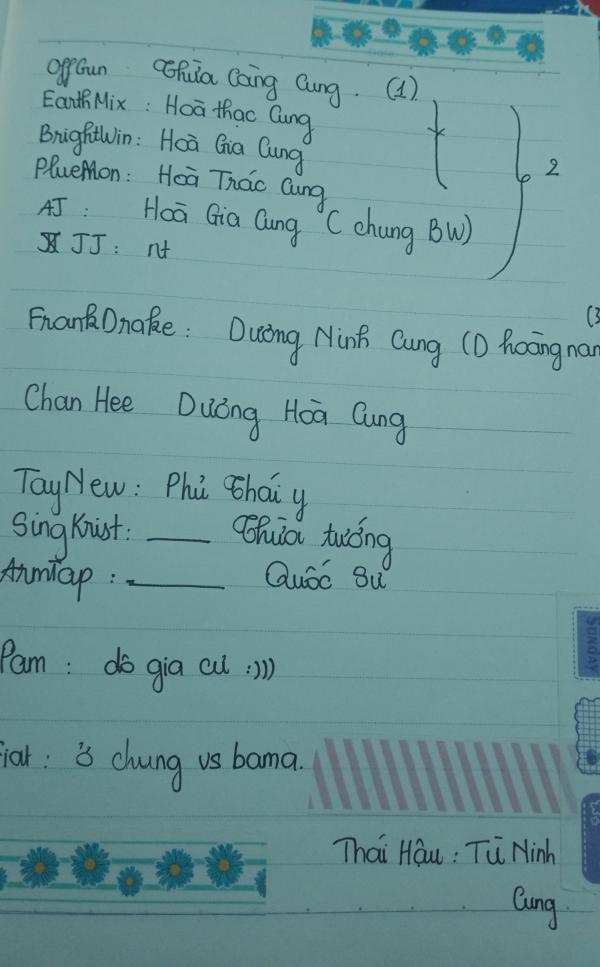 OffGun Thừa Càng Cung. (1)
EarthMix : Hoà thạc Cung
BrightWin: Hoà Gia Cung
PlueMon: Hoà Trác Cung
2
AJ : Hoà Gia Cung ( chung BW)
JJ : nt
(3
FrankDrake: Dương Ninh Cung (D hoàng nam
Chan Hee Dưỡng Hoà Cung
TayNew: Phủ Thái y
SingKrist: ____ Thừa tướng
ArmTap : ____ Quốc Sư
Pam : dô gia cư :)))
Fiat : ở chung vs bama.
SUNDAY
Thái Hậu : Từ Ninh
Cung.